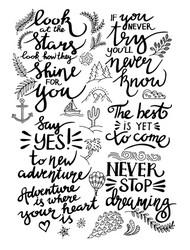 Look
at the
Stars
look how they
Shine
FOR
you
IF YOU
Never
try
you'll
never
know
Say
YES!
to new
adventure
The best
IS YET
to come
Adventure
is where
your heart
is
NEVER
STOP
dreaming